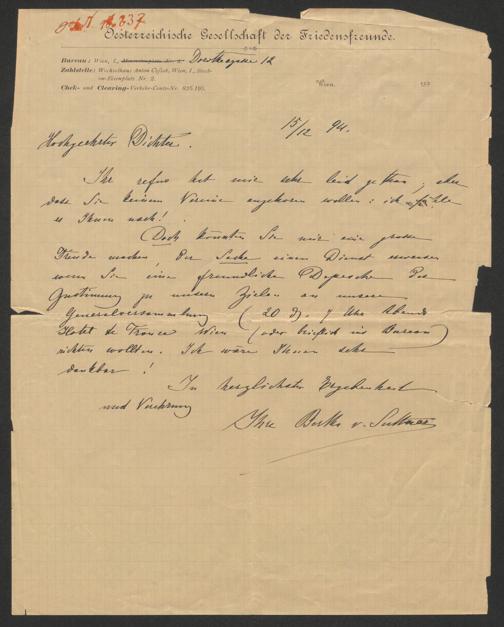 Oesterreichische Gesellschaft der Friedensfreunde.
Bureau: Wien, I., Dorotheagasse 12
Zahlstelle: Wechselhaus Anton Czjžek, Wien, I., Stock-
im-Eisenplatz Nr. 2.
Chek- und Clearing-Verkehr-Conto-Nr.
Wien, 189
15/12 94.
Hochgeehrter Dichter.
Ihr refus hat mir sehr leid gethan, aber
dass Sie keinem Vereine angehören wollen: ich fühle
es Ihnen nach!
Doch könnten Sie mir eine grosse
Freude machen, der Sache einen Dienst erweisen
wenn Sie eine freundliche Depesche der
Zustimmung zu unseren Zielen an unsere
Generalversammlung (20 d. 7 Uhr Abends
Hotel de France Wien (oder brieflich ins Bureau)
richten wollten. Ich wäre Ihnen sehr
dankbar!
In herzlichster Ergebenheit
und Verehrung
Ihre Bertha v. Suttner